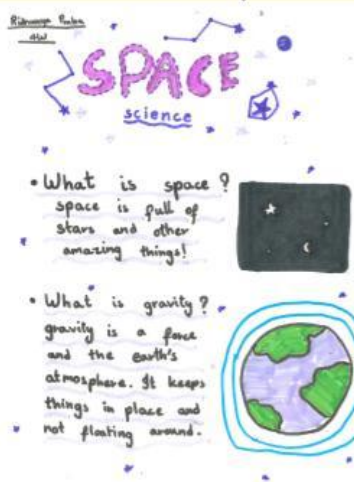 4W
SPACE
science
• What is space?
space is full of
stars and other
amazing things!
• What is gravity?
gravity is a force
and the earth's
atmosphere. It keeps
things in place and
not floating around.